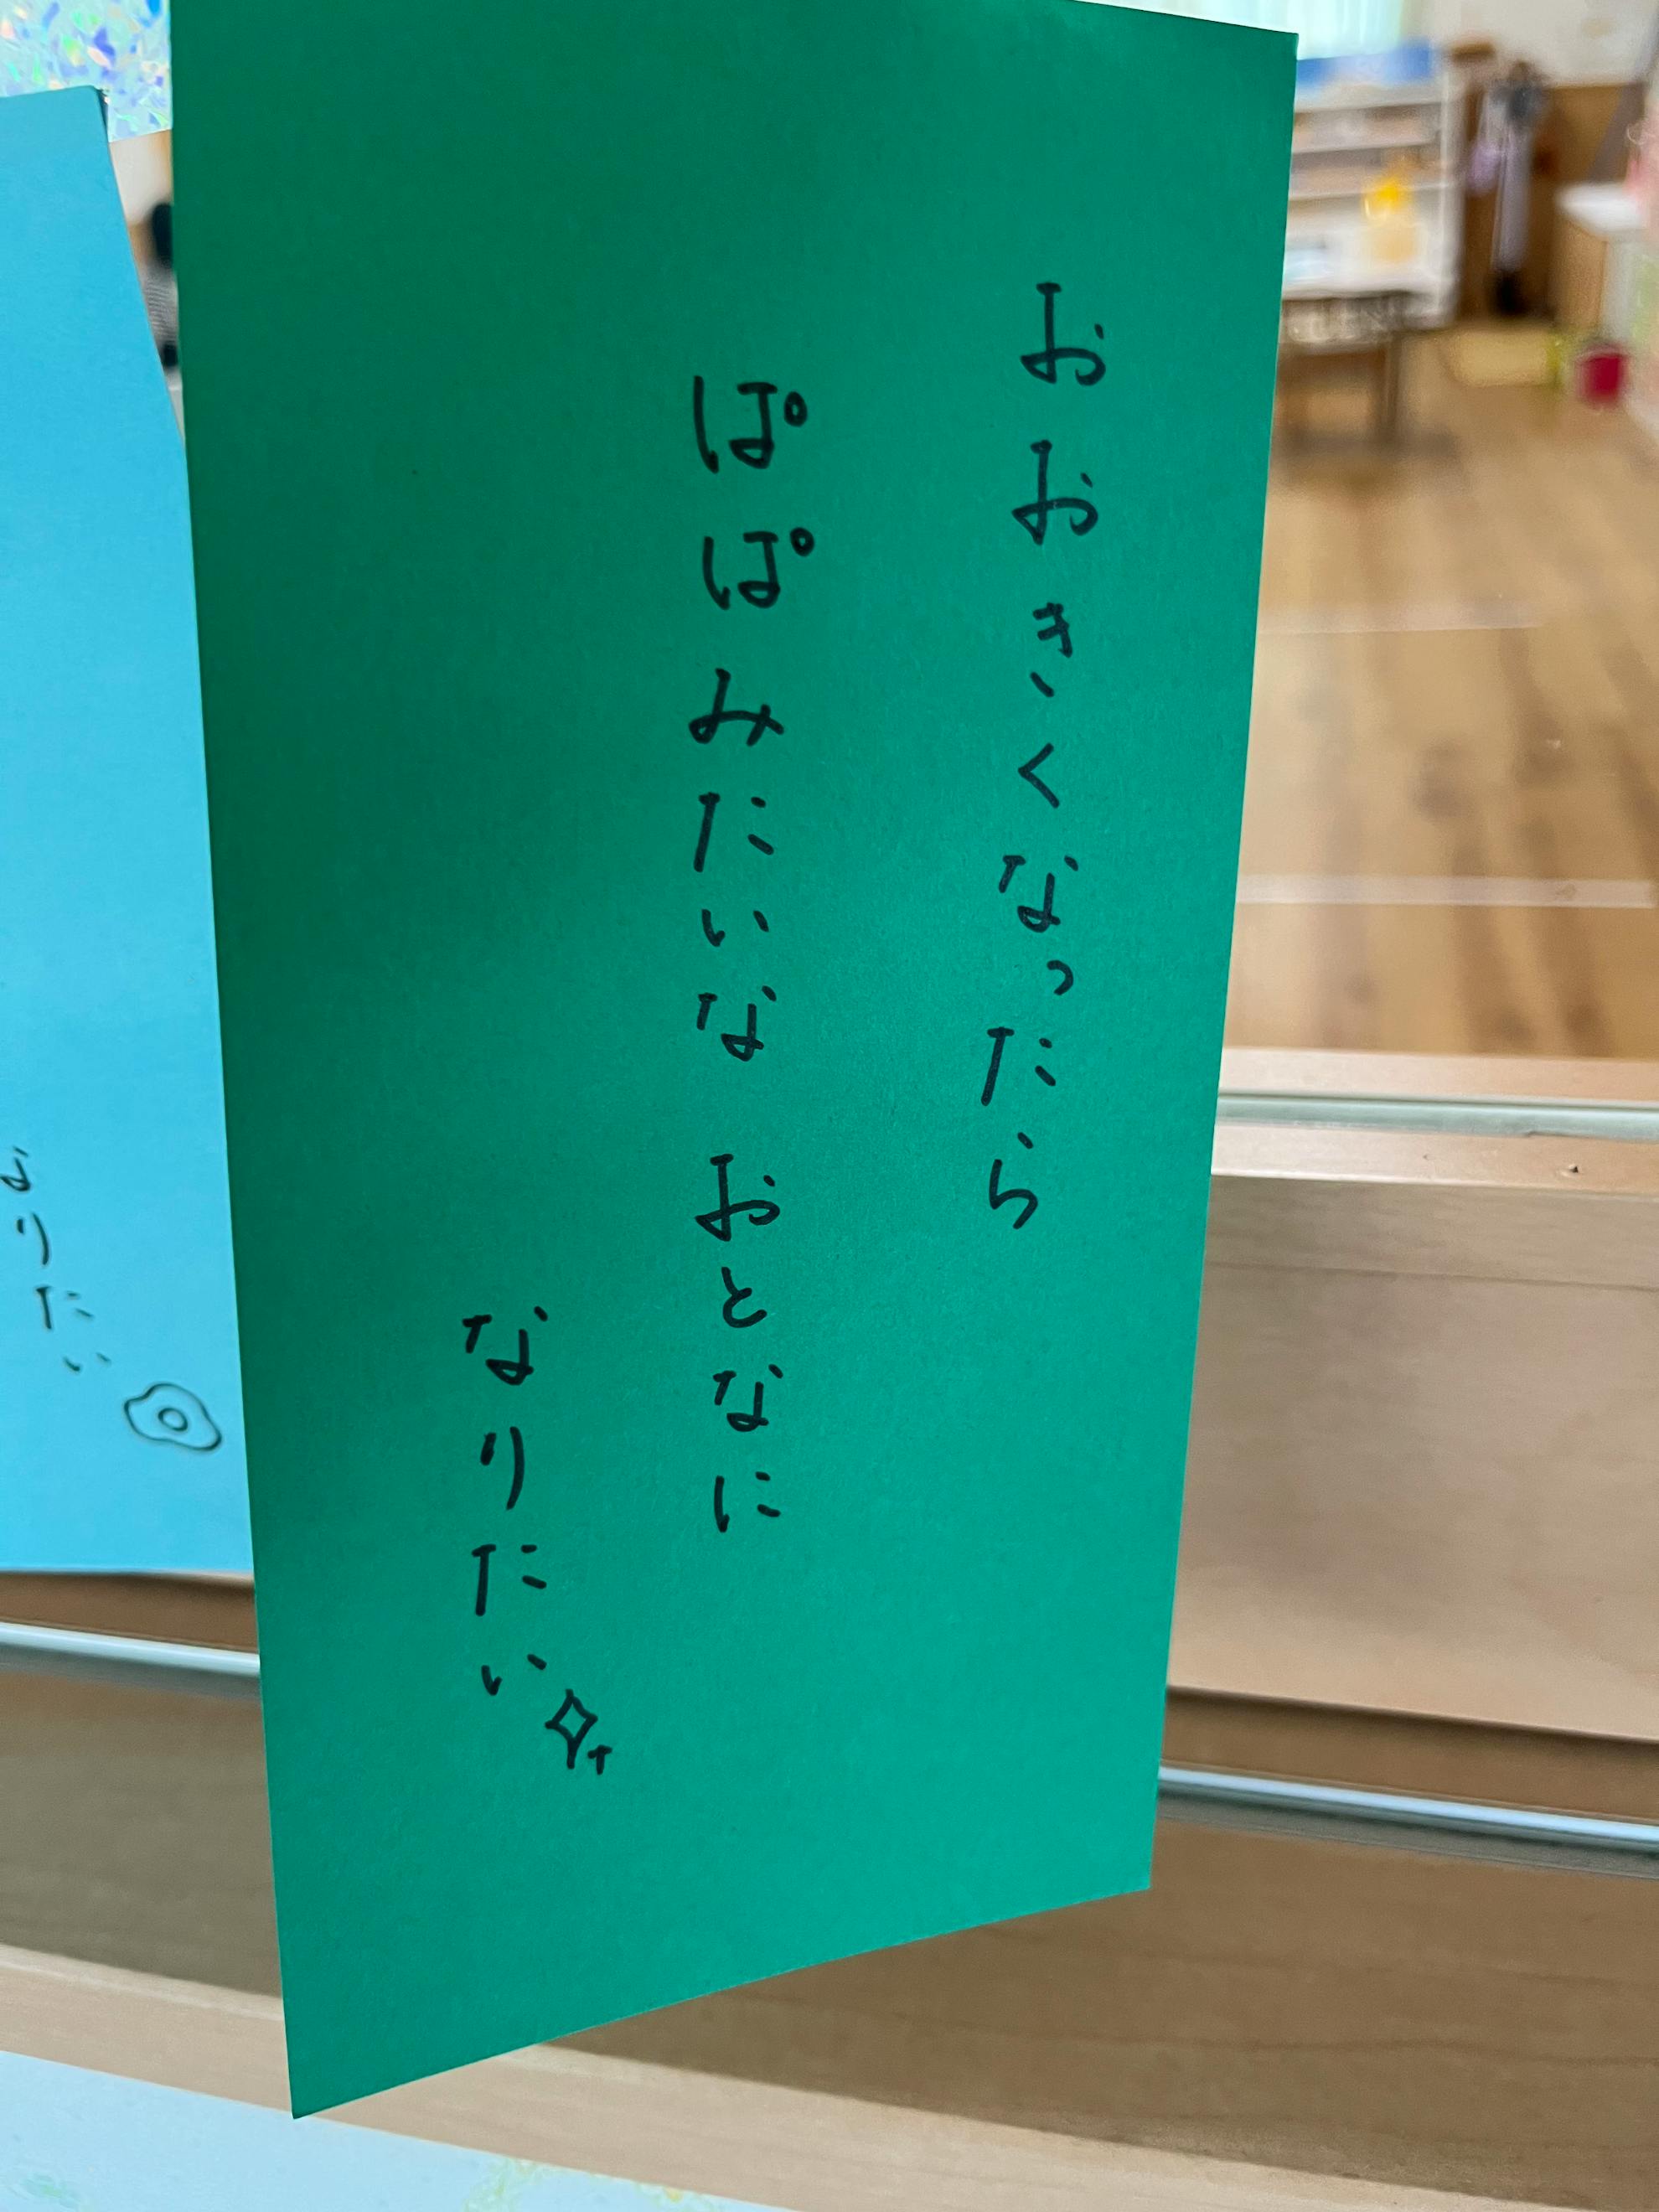 おおきくなったら
ぱぱみたいな おとなに
なりたい
なりたい